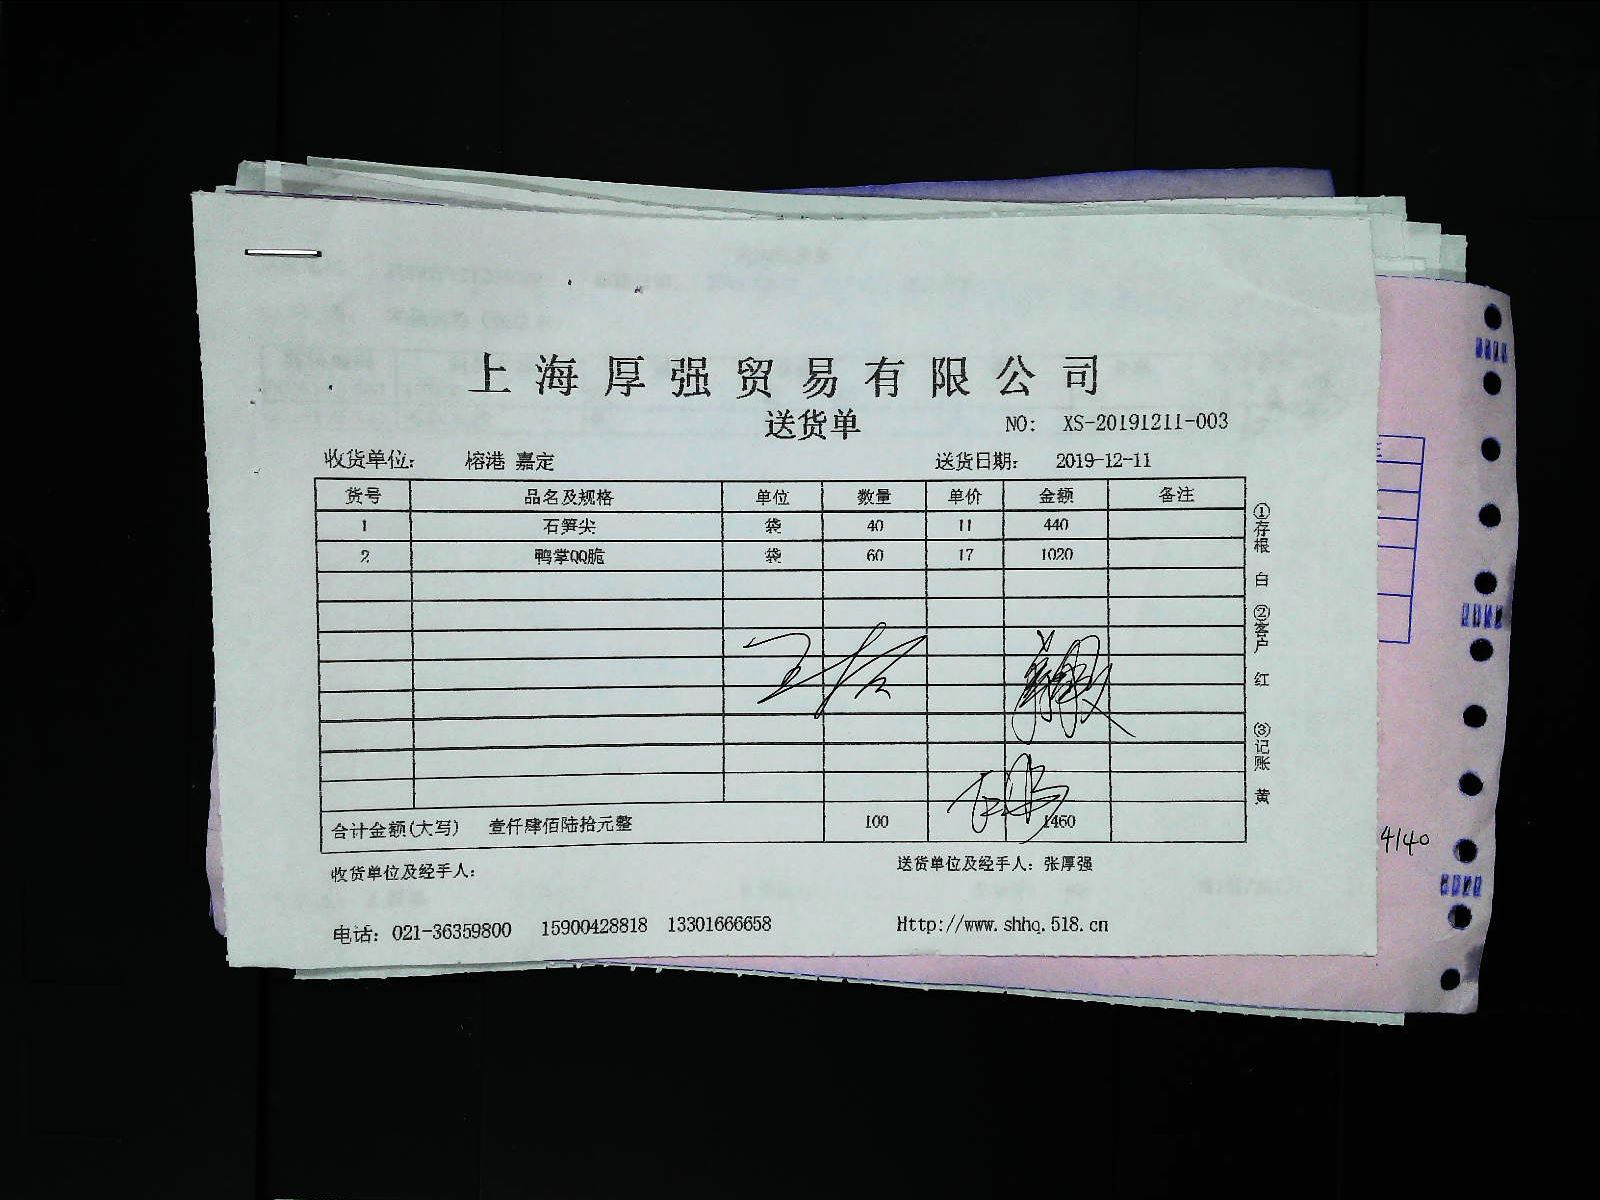 上海厚强贸易有限公司
送货单
NO: XS-20191211-003
收货单位: 榕港 嘉定 送货日期: 2019-12-11
货号 品名及规格 单位 数量 单价 金额 备注
1 石笋尖 袋 40 11 440
2 鸭掌QQ脆 袋 60 17 1020
合计金额(大写) 壹仟肆佰陆拾元整 100 1460
收货单位及经手人: 送货单位及经手人: 张厚强
电话: 021-36359800 15900428818 13301666658 Http://www.shhq.518.cn
①存根 白 ②客户 红 ③记账 黄
4140